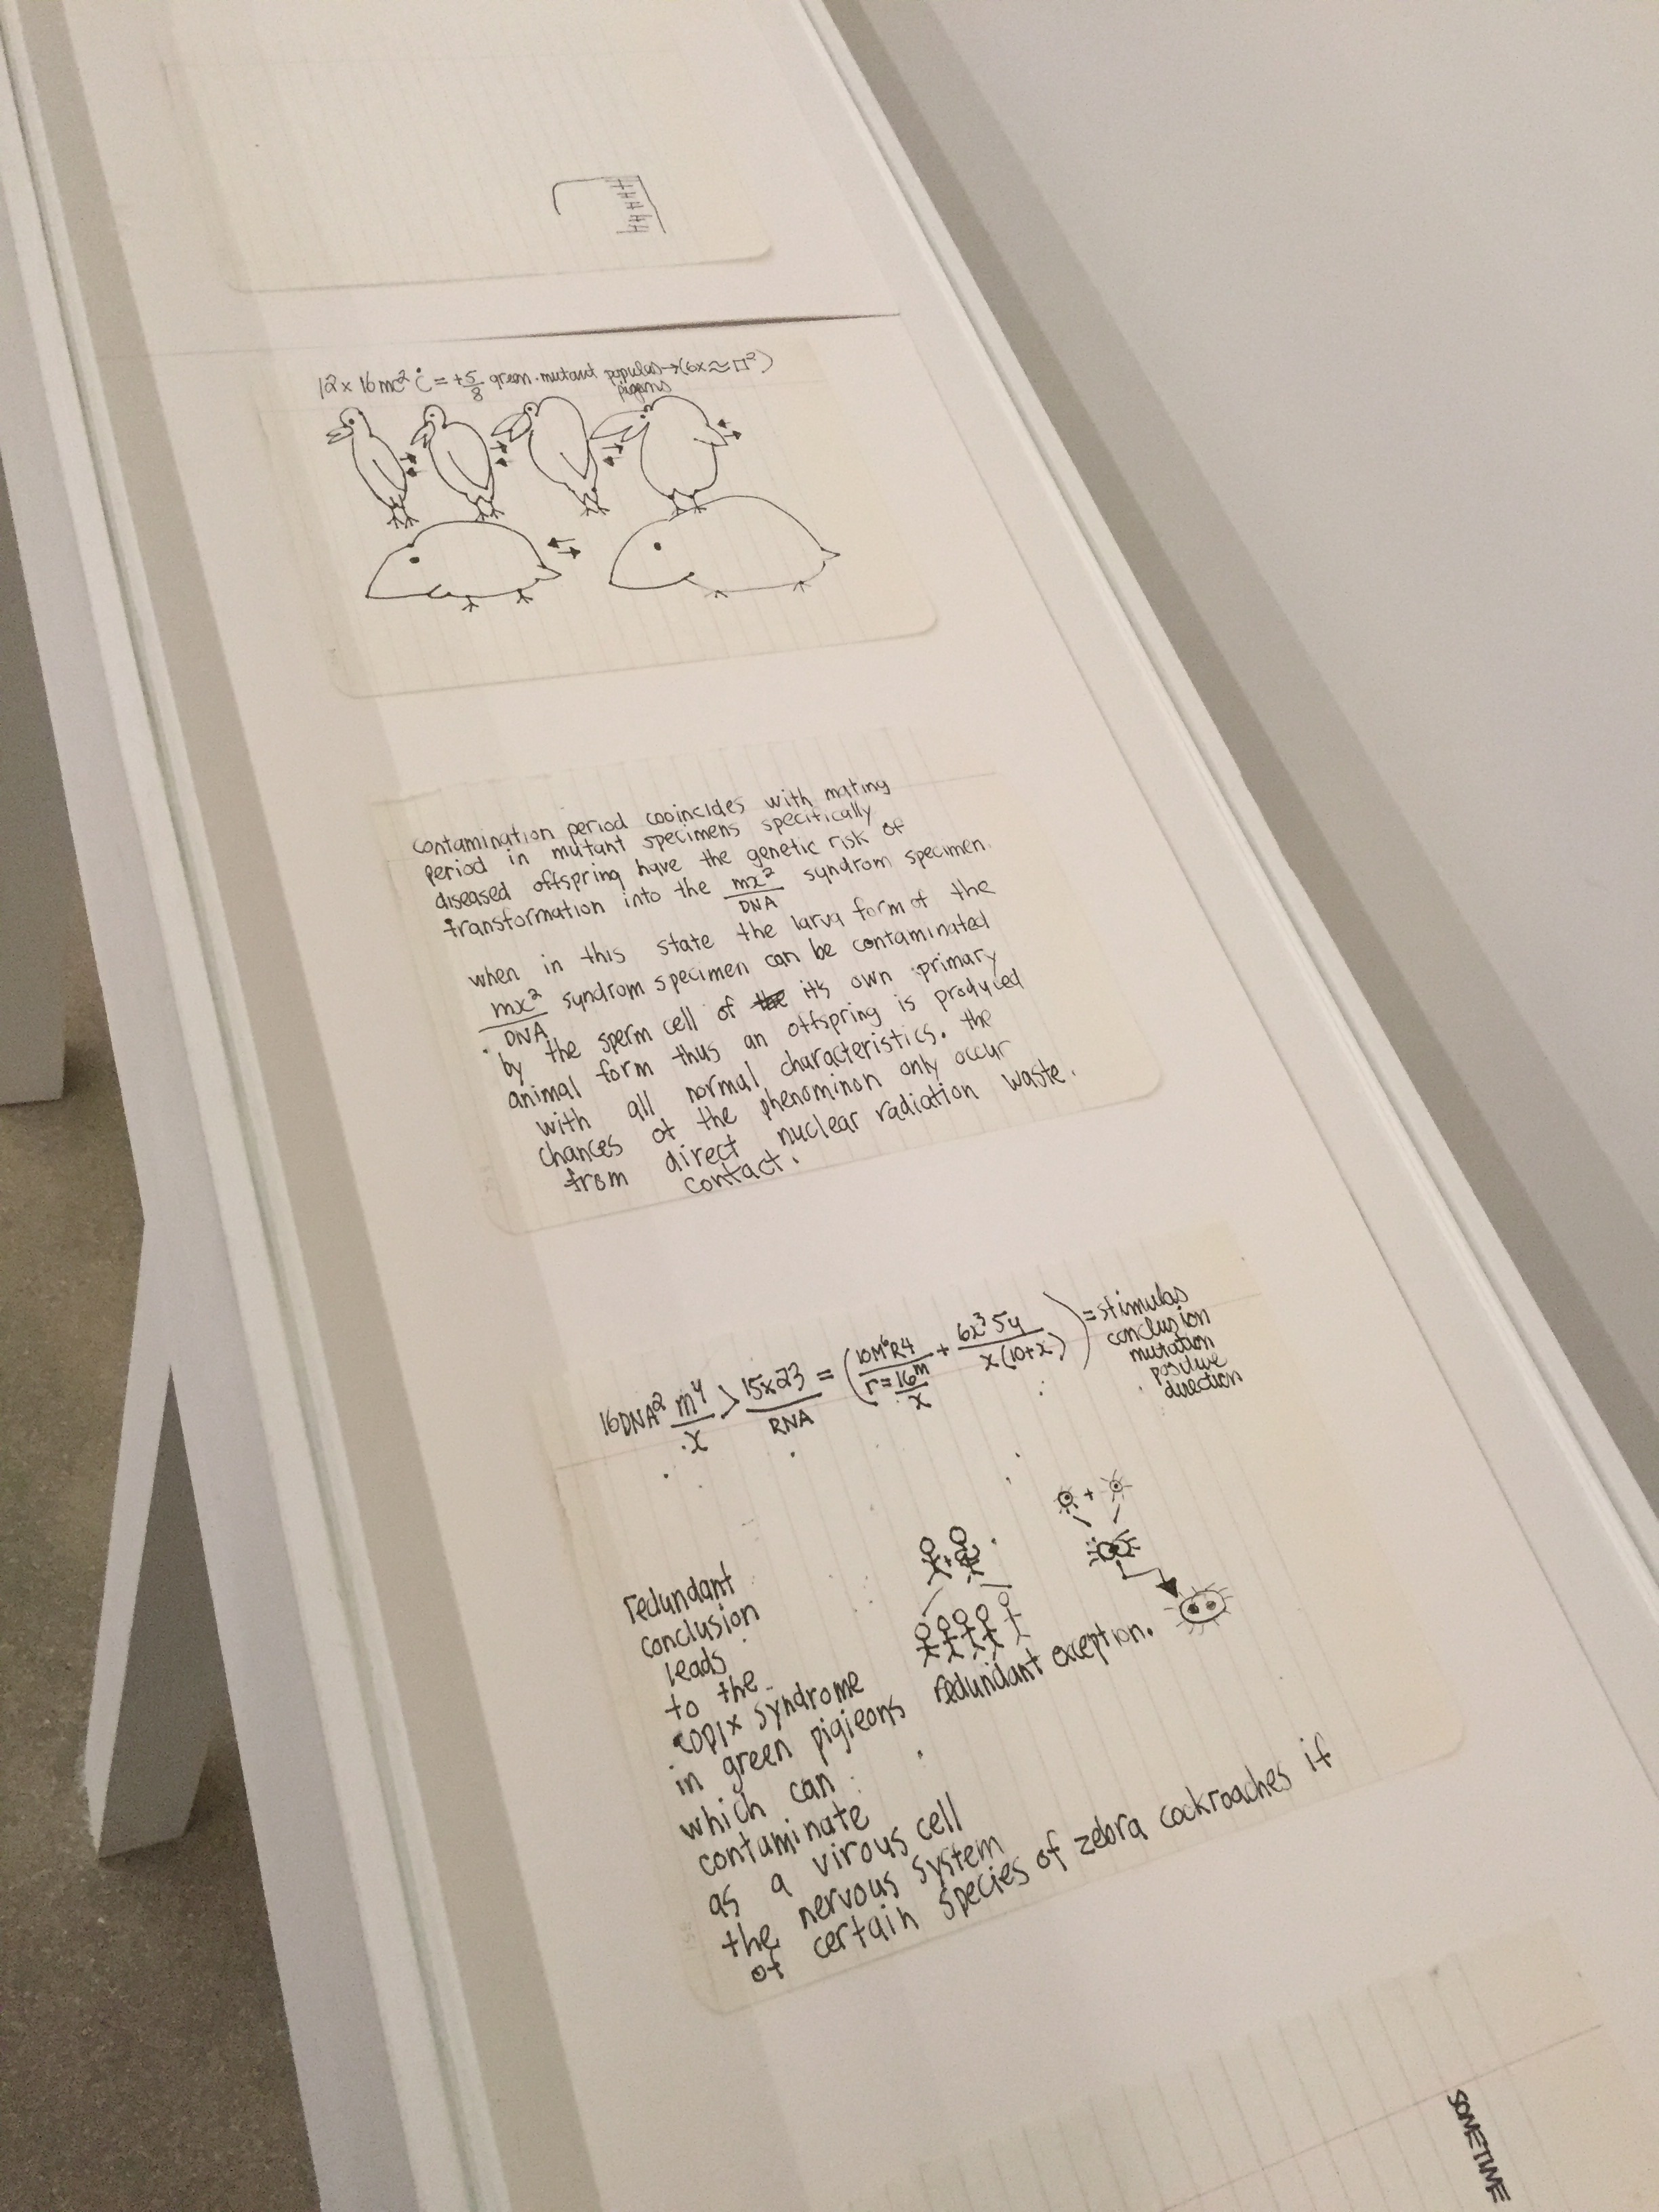 12 x 16 mc² i = +5/8 green mutant populas → (6x ≈ □²)
pigeons
contamination period cooincides with mating
period in mutant specimens specifically
diseased offspring have the genetic risk of
transformation into the mx²/DNA syndrom specimen.
when in this state the larva form of the
mx²/DNA syndrom specimen can be contaminated
by the sperm cell of the its own primary
animal form thus an offspring is produced
with all normal characteristics. the
chances of the phenominon only occur
from direct nuclear radiation waste.
contact.
16DNA² m⁴/x > 15x23/RNA = (10M⁶R4/r=16m/x + 6x³5y/x(10+x)) = stimulas
conclusion
mutation
positive
direction
redundant
conclusion
leads
to the
copix syndrome
in green pigieons redundant exception.
which can
contaminate
as a virous cell
the nervous system
of certain species of zebra cockroaches if
SOMETIME